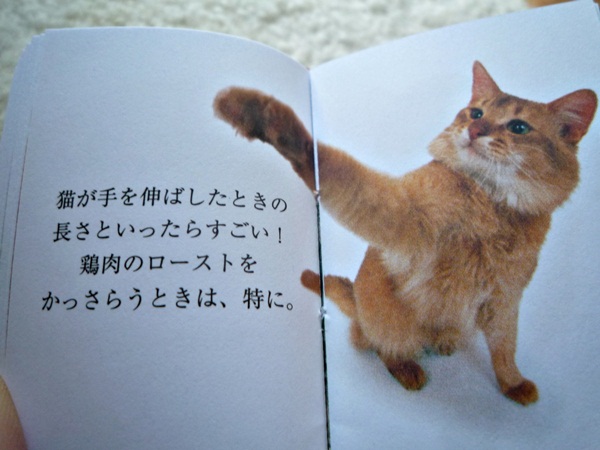 猫が手を伸ばしたときの
長さといったらすごい！
鶏肉のローストを
かっさらうときは、特に。